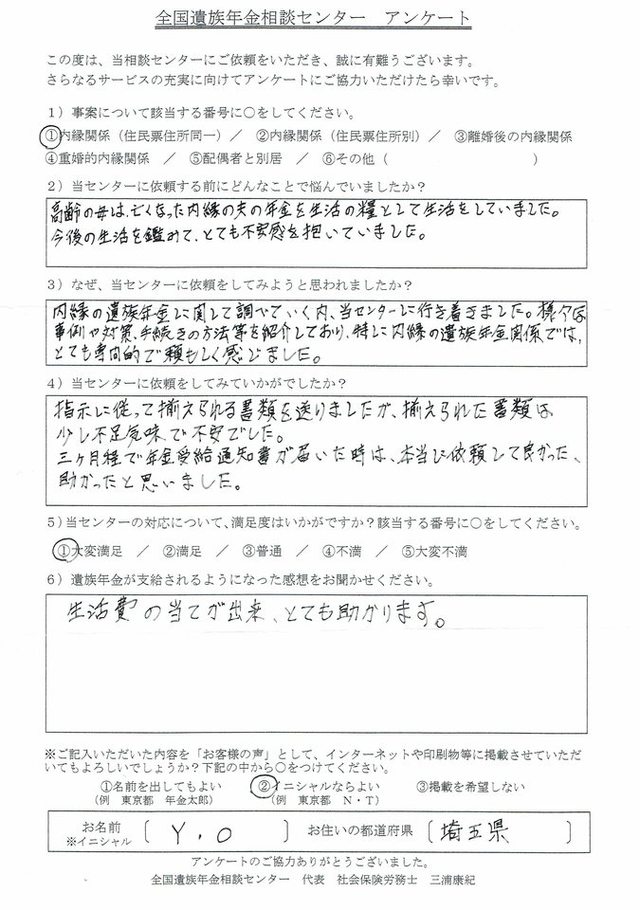 全国遺族年金相談センター　アンケート
この度は、当相談センターにご依頼をいただき、誠に有難うございます。
さらなるサービスの充実に向けてアンケートにご協力いただけたら幸いです。
1）事案について該当する番号に○をしてください。
①内縁関係（住民票住所同一）／　②内縁関係（住民票住所別）／　③離婚後の内縁関係
④重婚的内縁関係　／　⑤配偶者と別居　／　⑥その他（　　　　　　　　　　）
2）当センターに依頼する前にどんなことで悩んでいましたか？
高齢の母は、亡くなった内縁の夫の年金を生活の糧として生活をしていました。
今後の生活を鑑みて、とても不安感を抱いていました。
3）なぜ、当センターに依頼をしてみようと思われましたか？
内縁の遺族年金に関して調べていく内、当センターに行き着きました。様々な
事例や対策、手続きの方法等を紹介しており、特に内縁の遺族年金関係では、
とても専門的で頼もしく感じました。
4）当センターに依頼をしてみていかがでしたか？
指示に従って揃えられる書類を送りましたが、揃えられた書類は
少し不足気味で不安でした。
三ヶ月程で年金受給通知書が届いた時は、本当に依頼して良かった、
助かったと思いました。
5）当センターの対応について、満足度はいかがですか？該当する番号に○をしてください。
①大変満足　／　②満足　／　③普通　／　④不満　／　⑤大変不満
6）遺族年金が支給されるようになった感想をお聞かせください。
生活費の当てが出来、とても助かります。
※ご記入いただいた内容を「お客様の声」として、インターネットや印刷物等に掲載させていただ
いてもよろしいでしょうか？下記の中から○をつけてください。
①名前を出してもよい　　②イニシャルならよい　　③掲載を希望しない
（例　東京都　年金太郎）　　（例　東京都　N・T）
お名前
※イニシャル　〔　Y.O　〕　お住いの都道府県　〔　埼玉県　〕
アンケートのご協力ありがとうございました。
全国遺族年金相談センター　代表　社会保険労務士　三浦康紀